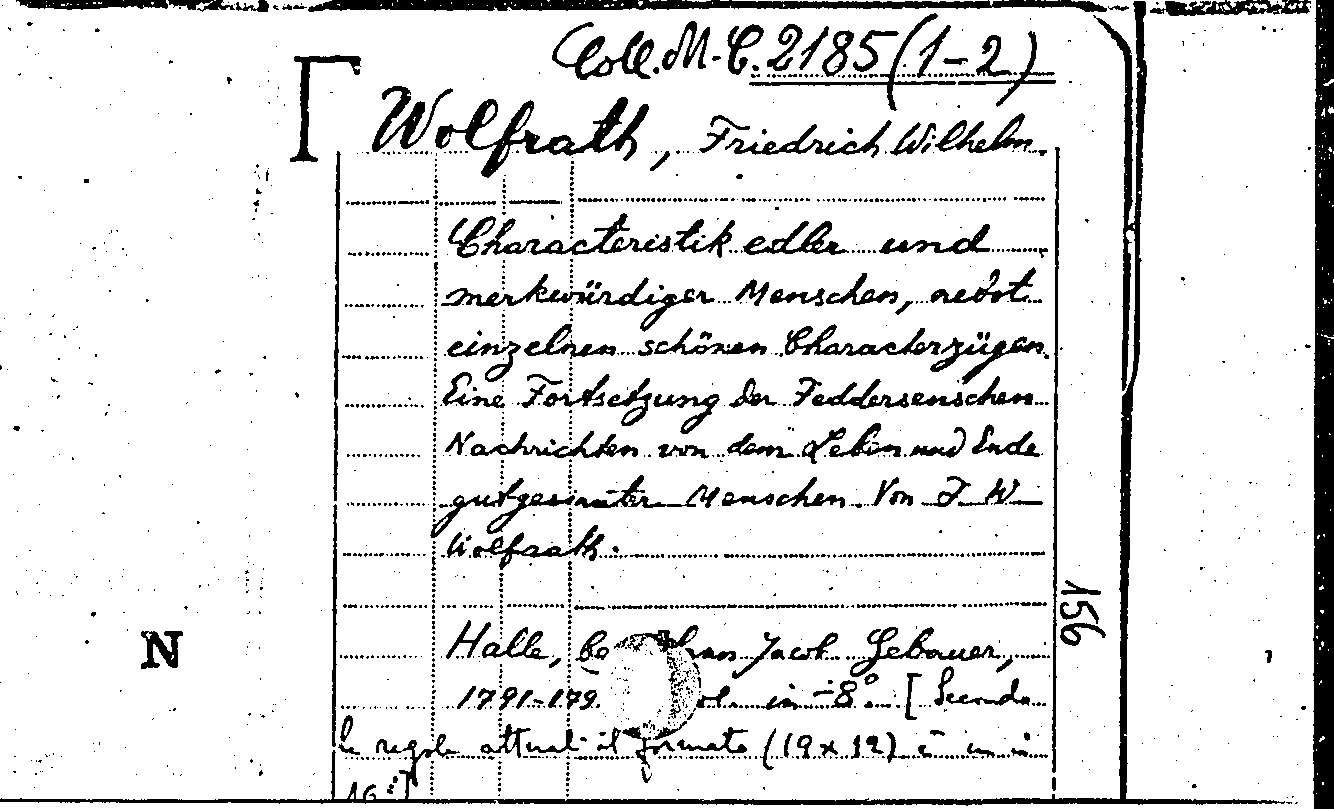 Coll. M. C. 2185 (1-2)
Wolfrath, Friedrich Wilhelm.
Characteristik edler und
merkwürdiger Menschen, nebst
einzelnen schönen Characterzügen.
Eine Fortsetzung der Feddersenschen
Nachrichten von dem Leben und Ende
gutgesinnter Menschen. Von F. W.
Wolfrath.
156
N
Halle, Jacob Gebauer,
1791-179 in-8°. [Secondo
le regole attuali il formato (19 x 12) è un in
16°]